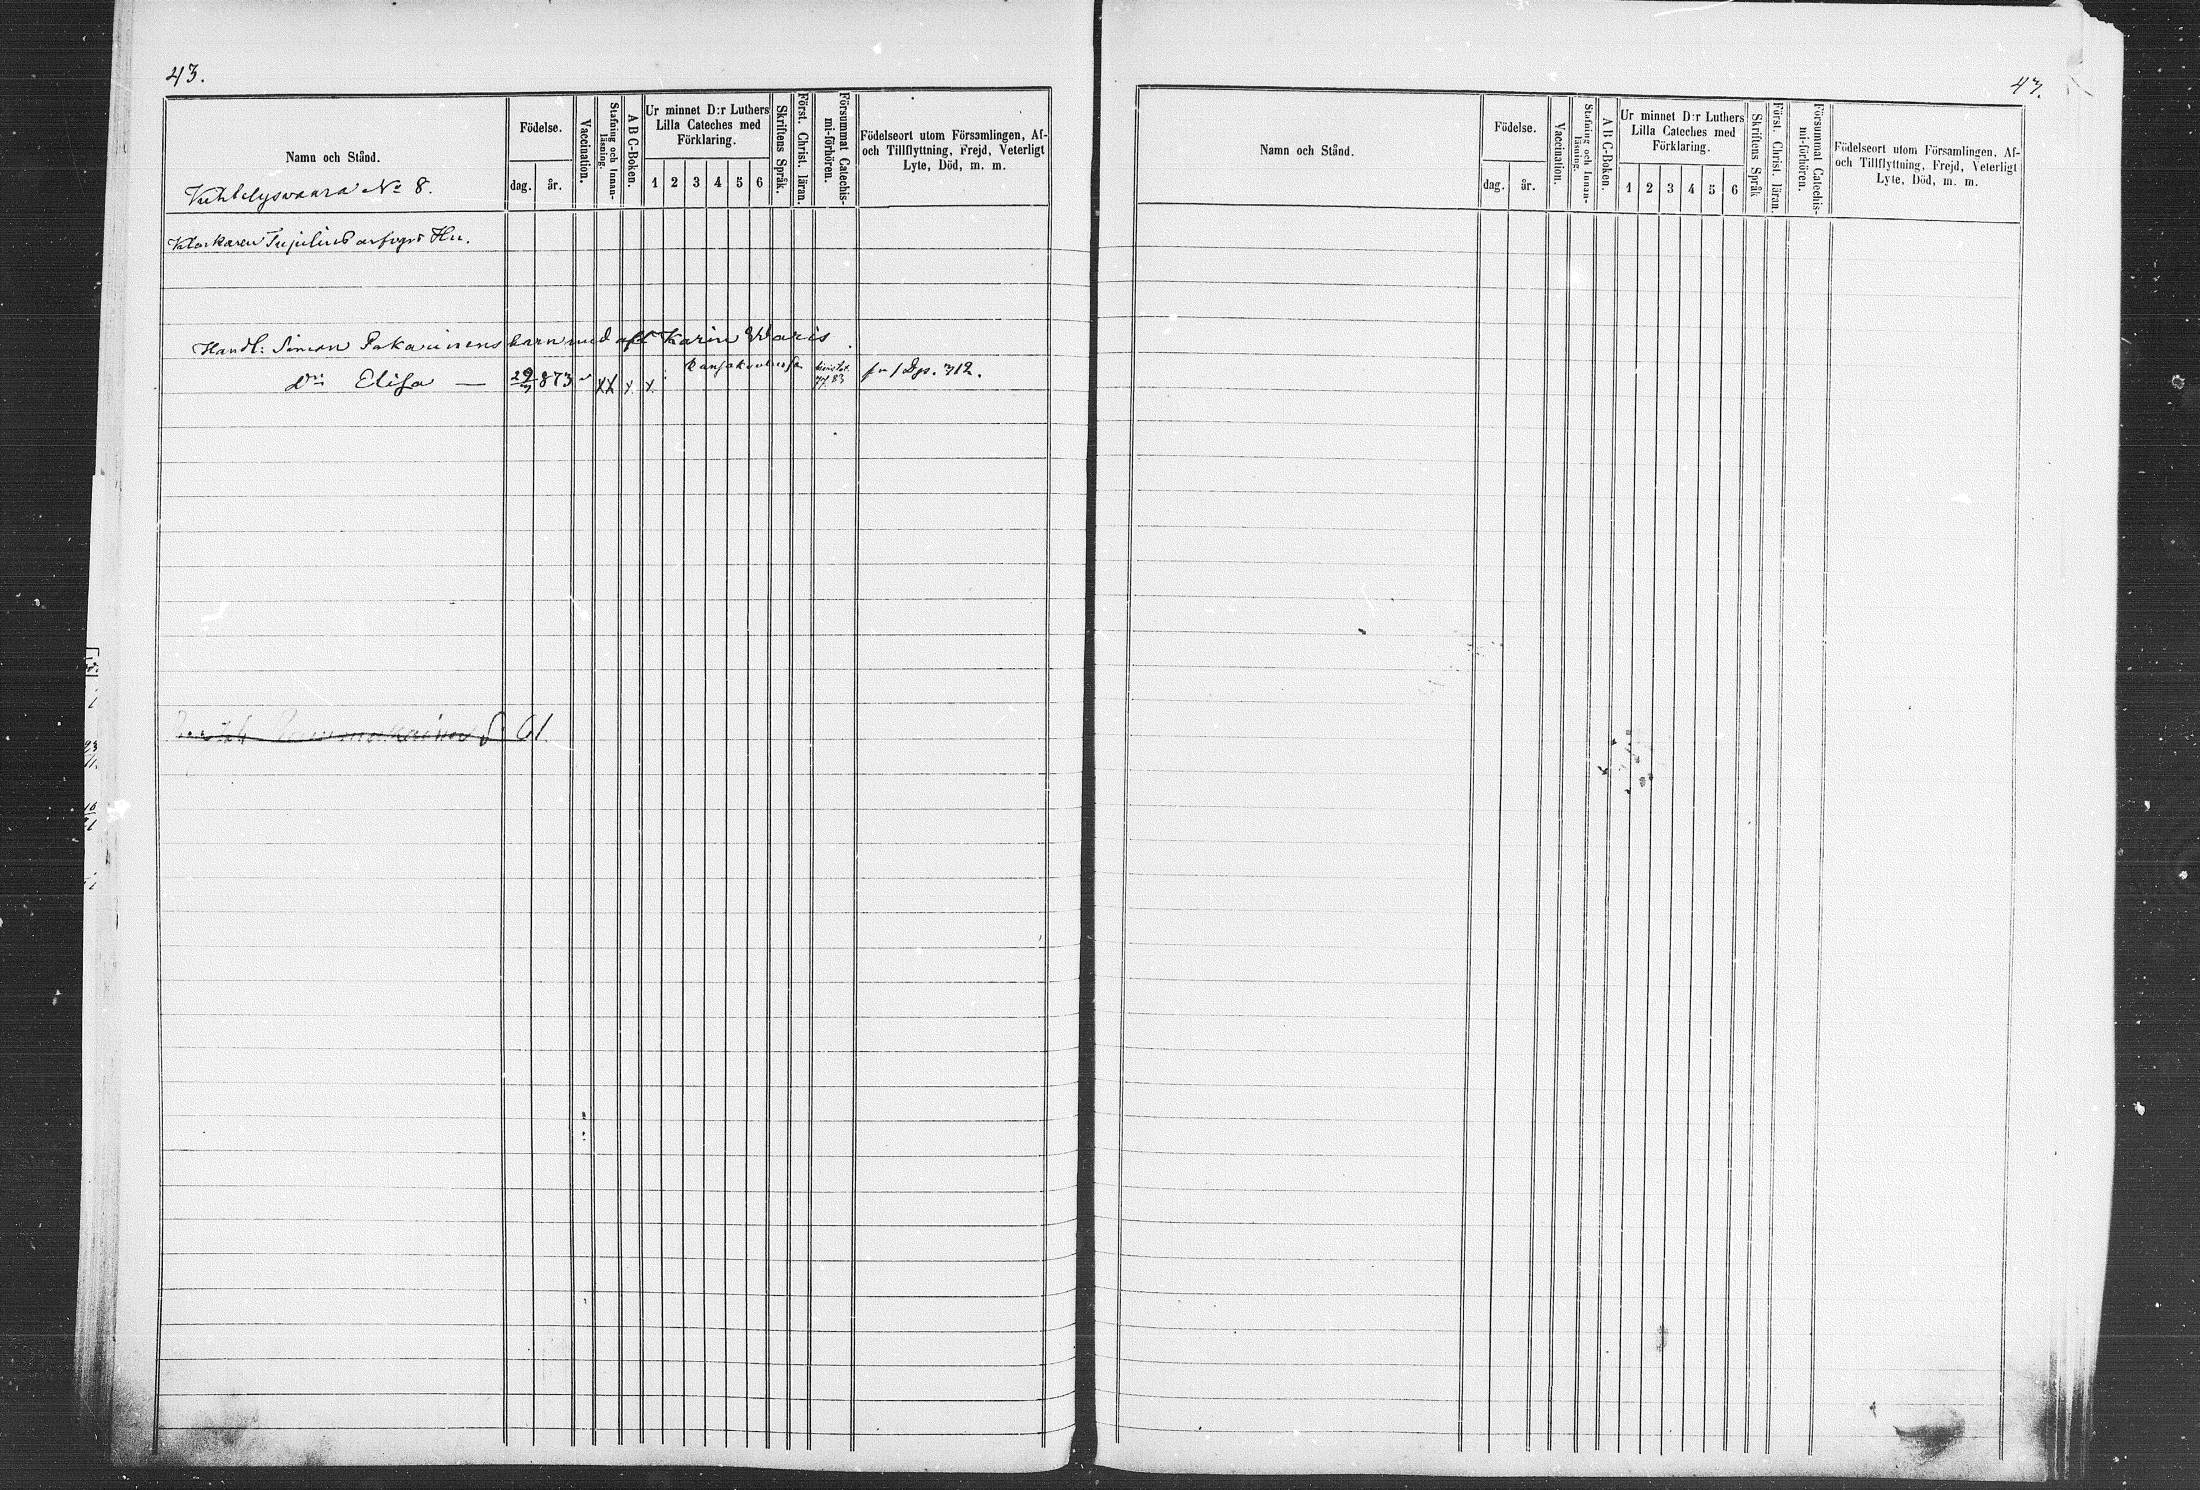 43.
Namn och Stånd.
Födelse.
dag.
år.
Vaccination.
Stafning och Innan-
läsning.
A B C-Boken.
Ur minnet D:r Luthers
Lilla Cateches med
Förklaring.
1 2 3 4 5 6
Skriftens Språk.
Först. Christ. läran.
Försummat Catechis-
mi-förhören.
Födelseort utom Församlingen, Af-
och Tillflyttning, Frejd, Veterligt
Lyte, Död, m. m.
No 8.
Handl: Simon Pakarinens barn med Karin Waris
Elisa — 29/7 873 XX x. x.
83
fr 712.
61.
43.
Namn och Stånd.
Födelse.
dag.
år.
Vaccination.
Stafning och Innan-
läsning.
A B C-Boken.
Ur minnet D:r Luthers
Lilla Cateches med
Förklaring.
1 2 3 4 5 6
Skriftens Språk
Först. Christ. läran.
Försummat Catechis-
mi-förhören.
Födelseort utom Församlingen, Af-
och Tillflyttning, Frejd, Veterligt
Lyte, Död, m. m.